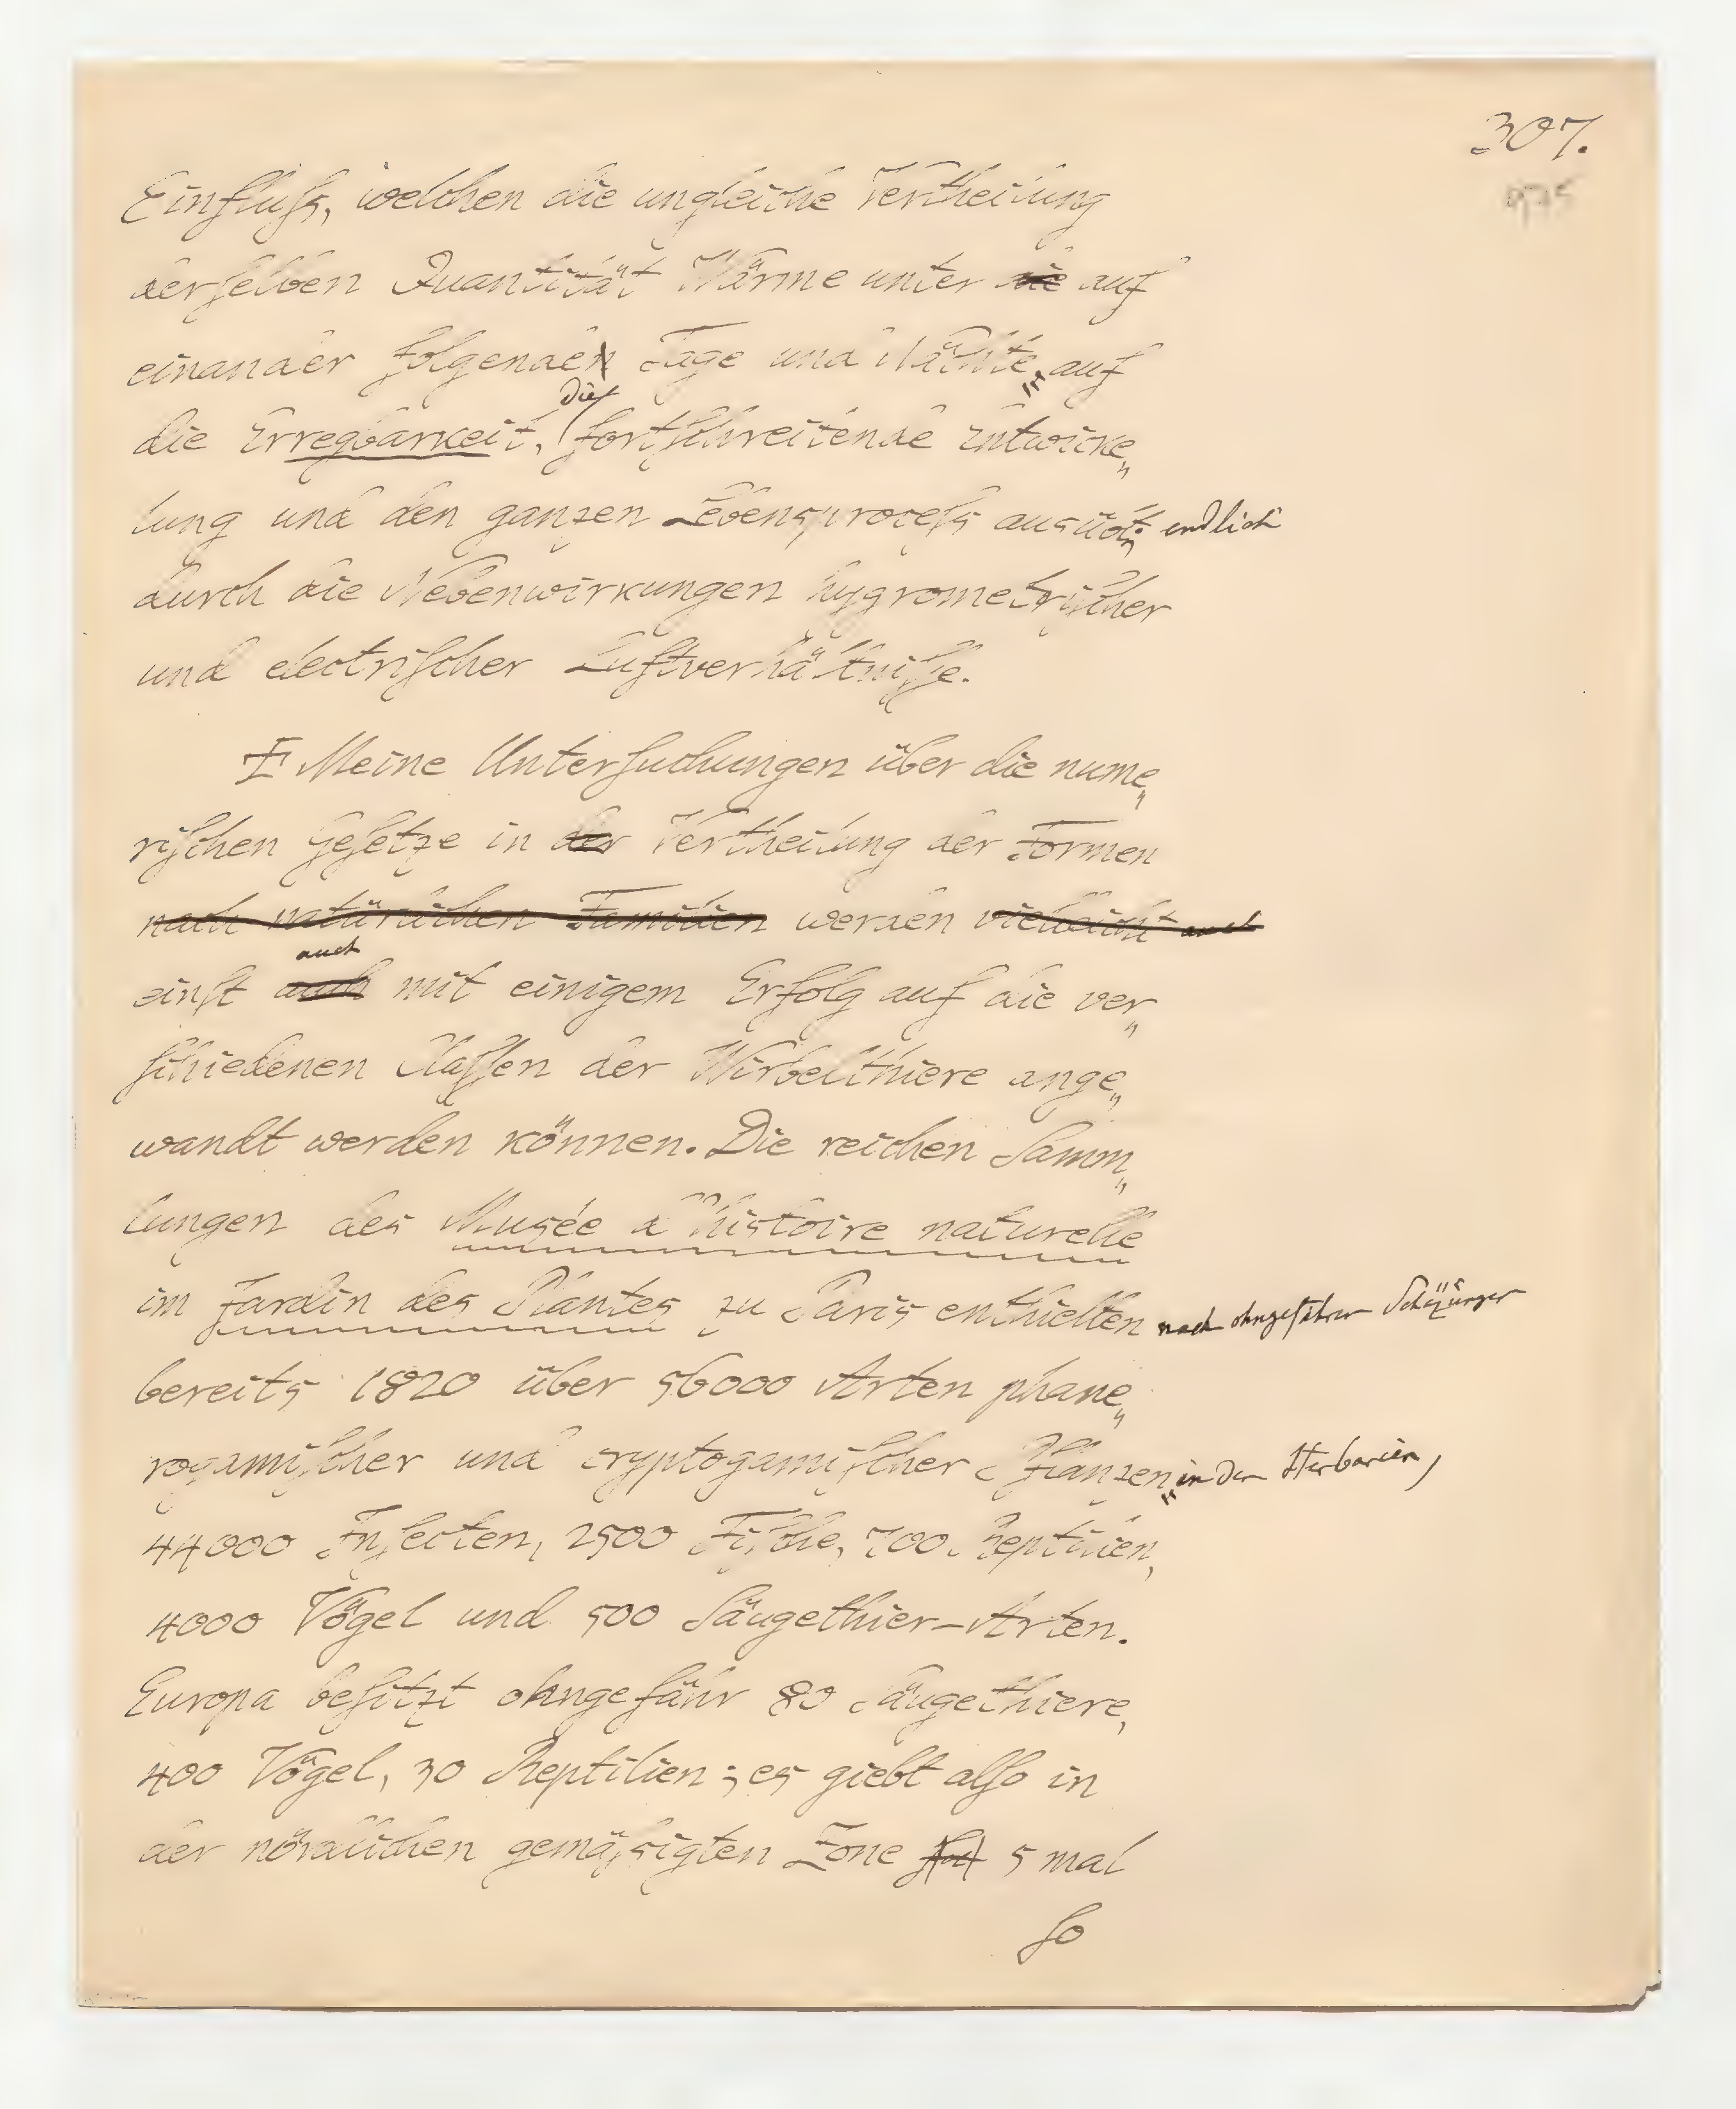 307.
Einfluſs, welchen die ungleiche Vertheilung
derſelben Quantität Wärme unter die auf
einander folgenden Tage und Nächte, auf
die Erregbarkeit, die fortſchreitende Entwicke„
lung und den ganzen Lebensproceſs ausübt; endlich
durch die Nebenwirkungen hygrometriſcher
und electriſcher Luftverhältniſſe.
Meine Unterſuchungen über die nume„
riſchen Geſetze in der Vertheilung der Formen
nach natürlichen Familien werden vielleicht auch
auch
einſt auch mit einigem Erfolg auf die ver„
ſchiedenen Klaſſen der Wirbelthiere ange„
wandt werden können. Die reichen Samm„
lungen des Musée d'histoire naturelle
im Jardin des Plantes zu Paris enthielten nach ohngefährer Schäzungen
bereits 1820 über 56000 Arten phane„
rogamiſcher und cryptogamiſcher Pflanzen in den Herbarien,
44000 Inſecten, 2500 Fiſche, 700 Reptilien,
4000 Vögel und 500 Säugethier-Arten.
Europa beſitzt ohngefähr 80 Säugethiere,
400 Vögel, 30 Reptilien; es giebt alſo in
der nördlichen gemäſsigten Zone faſt 5 mal
ſo